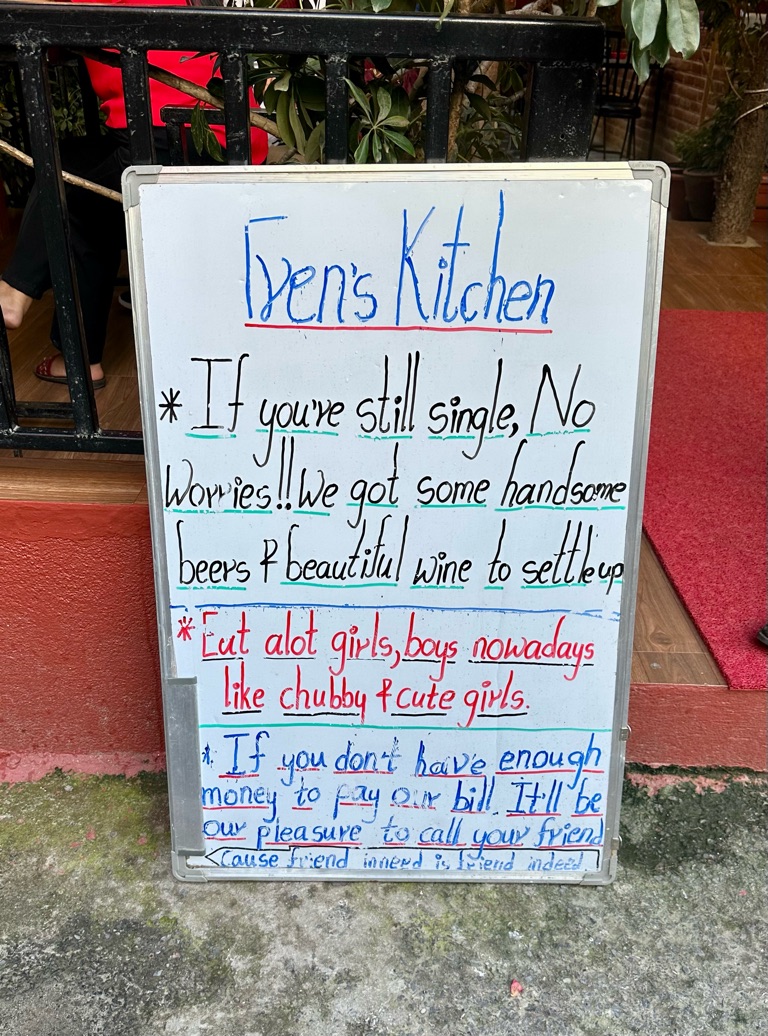 Iven's Kitchen
* If you're still single, No
Worries!! We got some handsome
beers & beautiful wine to settle up
* Eat alot girls, boys nowadays
like chubby & cute girls.
* If you don't have enough
money to pay our bill. It'll be
our pleasure to call your friend
Cause friend inneed is friend indeed